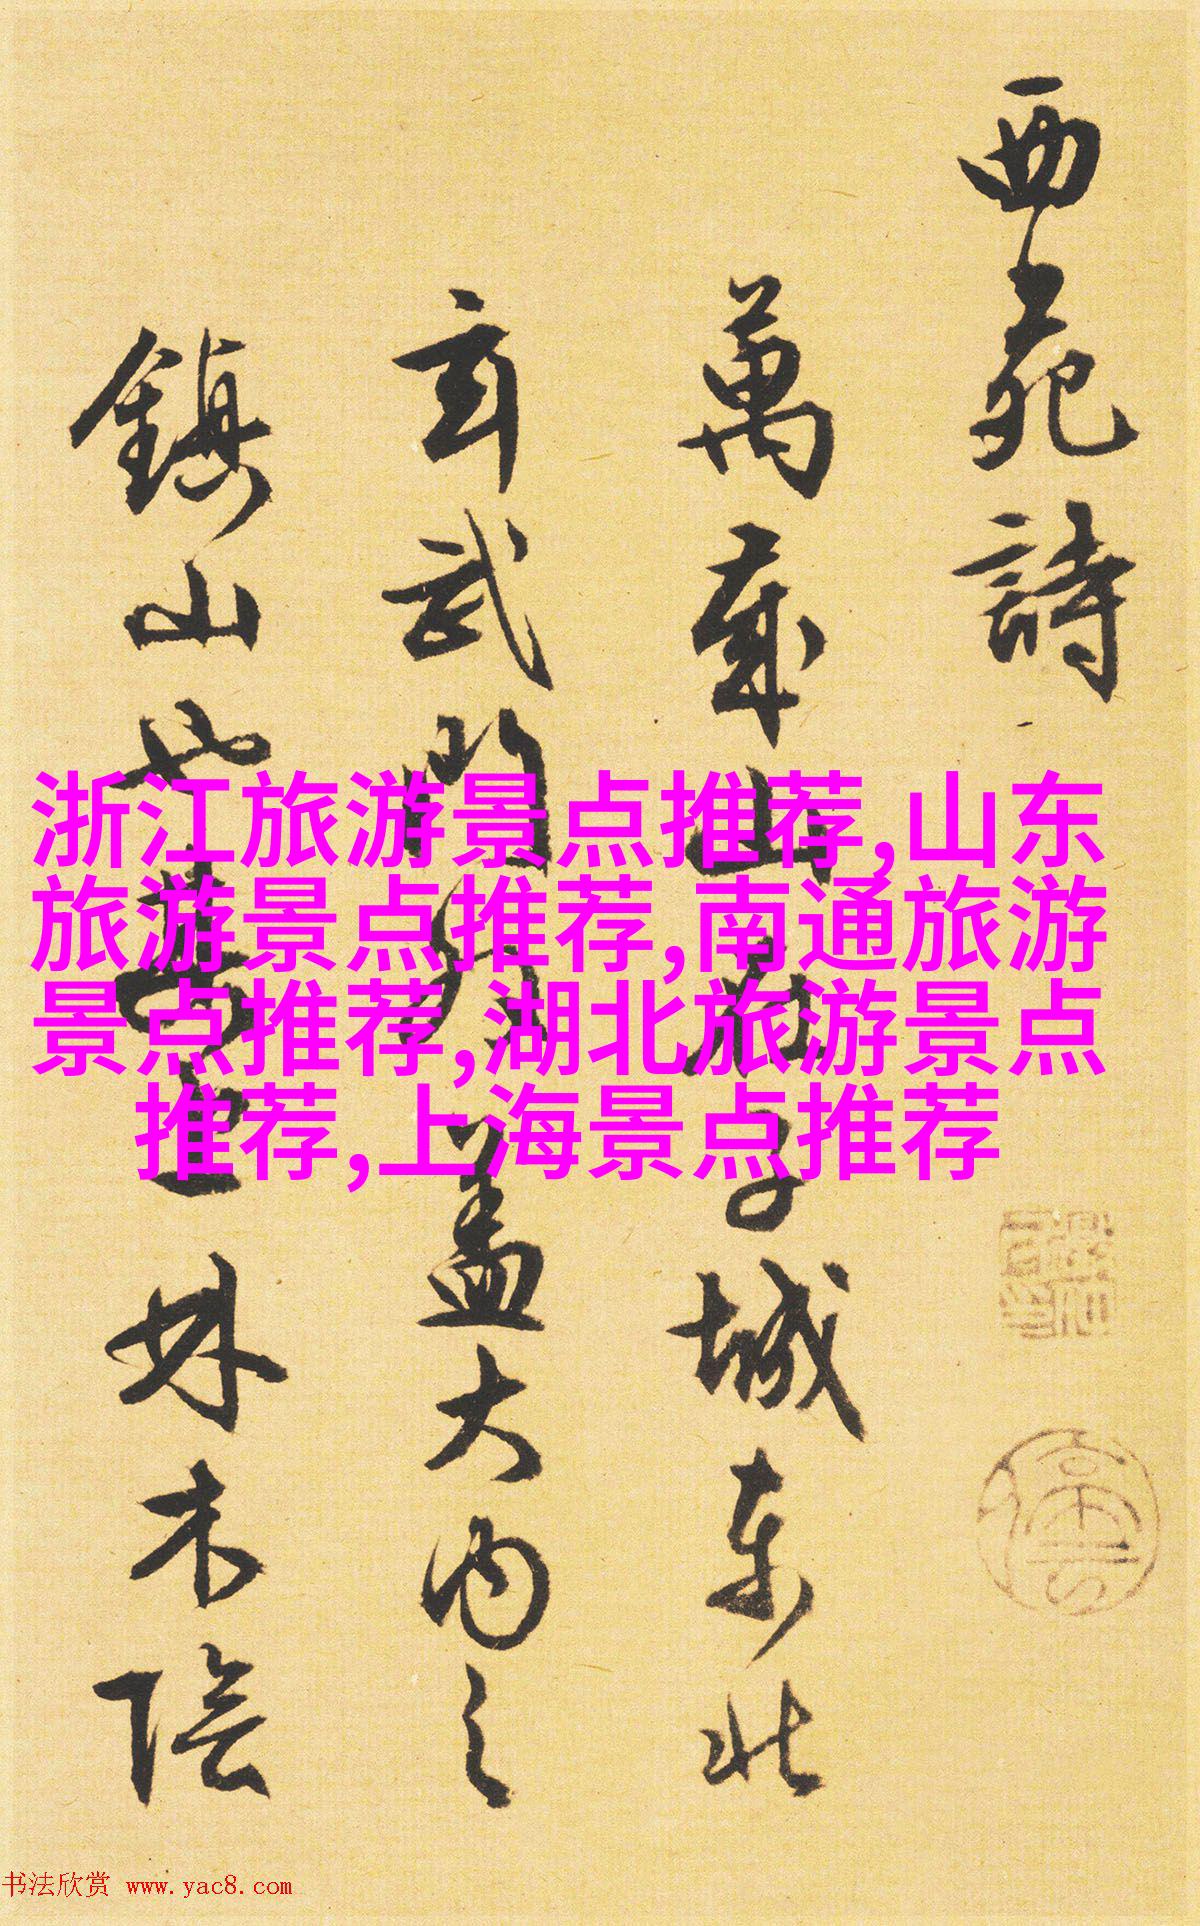 西苑詩
萬歲山在子城東北
玄武門外蓋大内之
鎮山也其上林木陰
浙江旅游景点推荐,山东
旅游景点推荐,南通旅游
景点推荐,湖北旅游景点
推荐,上海景点推荐
书法欣赏 www.yac8.com